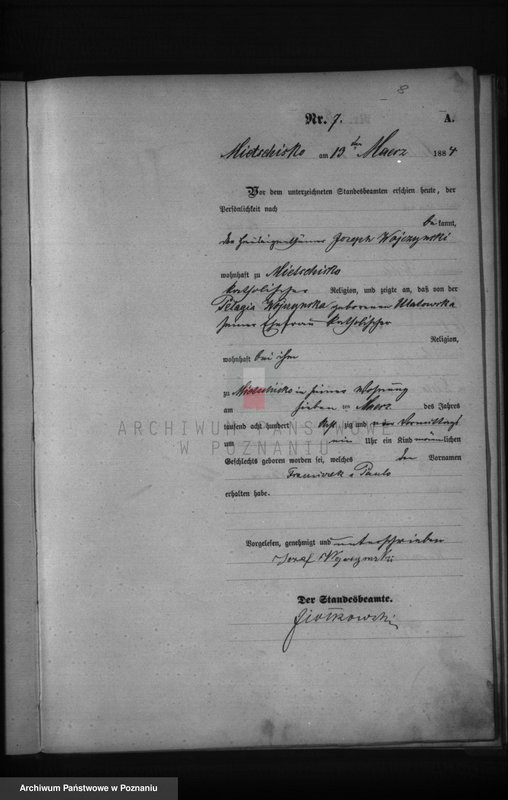 8
Nr. 7. A.
Mietschisko am 13ten Maerz 1884
Vor dem unterzeichneten Standesbeamten erschien heute, der
Persönlichkeit nach
bekannt,
der Joseph Wojczynski
wohnhaft zu Mietschisko
katholischer Religion, und zeigte an, daß von der
Pelagia Wojczynska geborenen
seiner Ehefrau katholischer
Religion,
wohnhaft bei ihm
zu Mietschisko in seiner Wohnung
am sieben ten Maerz des Jahres
tausend acht hundert zig und vier Vormittags
um ein Uhr ein Kind maennlichen
Geschlechts geboren worden sei, welches den Vornamen
erhalten habe.
Vorgelesen, genehmigt und unterschrieben
Jozef Wojczynski
Der Standesbeamte.
ARCHIWUM PAŃSTWOWE
W POZNANIU
Archiwum Państwowe w Poznaniu